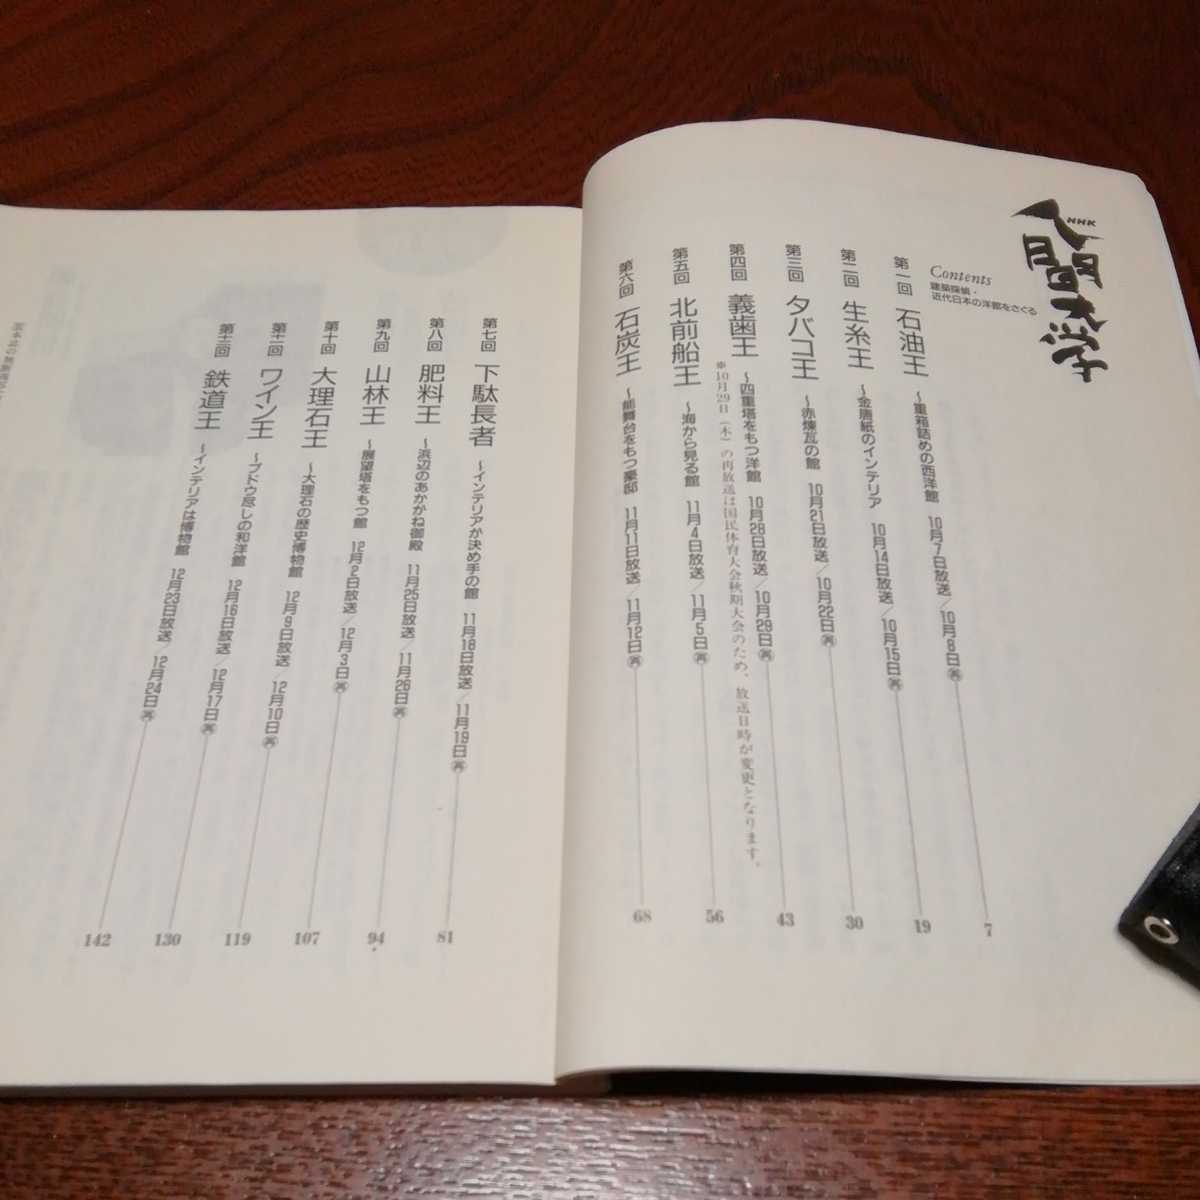 NHK
人間大学
Contents
建築探偵・
近代日本の洋館をさぐる
第一回 石油王 ～重箱詰めの西洋館 10月7日放送／10月8日㊢ 7
第二回 生糸王 ～金唐紙のインテリア 10月14日放送／10月15日㊢ 19
第三回 タバコ王 ～赤煉瓦の館 10月21日放送／10月22日㊢ 30
第四回 義歯王 ～四重塔をもつ洋館 10月28日放送／10月29日㊢ 43
※10月29日（木）の再放送は国民体育大会秋期大会のため、放送日時が変更となります。
第五回 北前船王 ～海から見る館 11月4日放送／11月5日㊢ 56
第六回 石炭王 ～能舞台をもつ豪邸 11月11日放送／11月12日㊢ 68
第七回 下駄長者 ～インテリアが決め手の館 11月18日放送／11月19日㊢ 81
第八回 肥料王 ～浜辺のあかがね御殿 11月25日放送／11月26日㊢ 94
第九回 山林王 ～展望塔をもつ館 12月2日放送／12月3日㊢ 107
第十回 大理石王 ～大理石の歴史博物館 12月9日放送／12月10日㊢ 119
第十一回 ワイン王 ～ブドウ尽しの和洋館 12月16日放送／12月17日㊢ 130
第十二回 鉄道王 ～インテリアは博物館 12月23日放送／12月24日㊢ 142